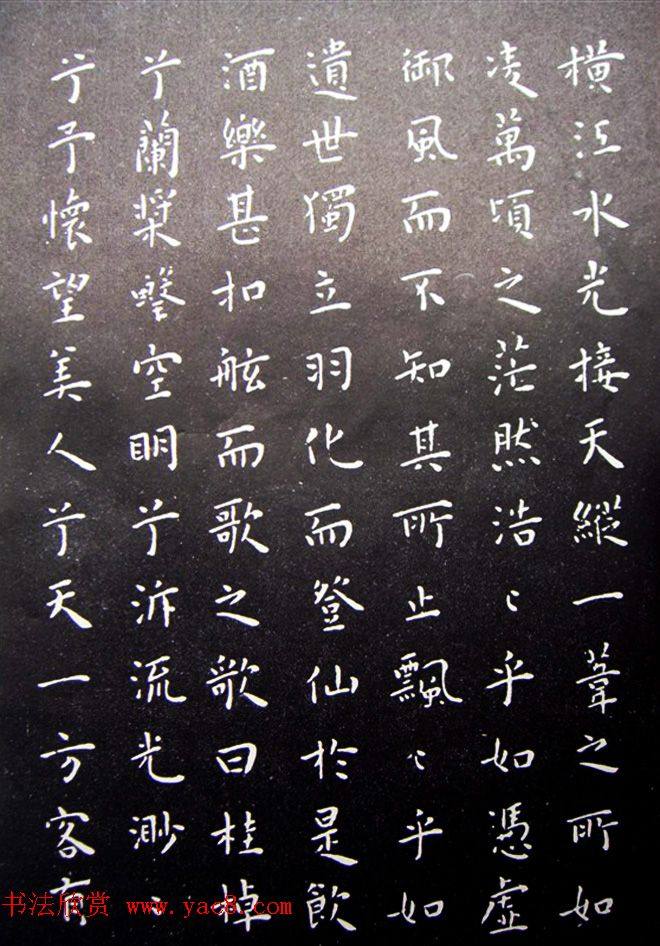 橫江水光接天縱一葦之所如
凌萬頃之茫然浩〻乎如憑虛
御風而不知其所止飄〻乎如
遺世獨立羽化而登仙於是飲
酒樂甚扣舷而歌之歌曰桂棹
兮蘭槳擊空明兮泝流光渺〻
兮予懷望美人兮天一方客有
书法欣赏 www.yac8.com